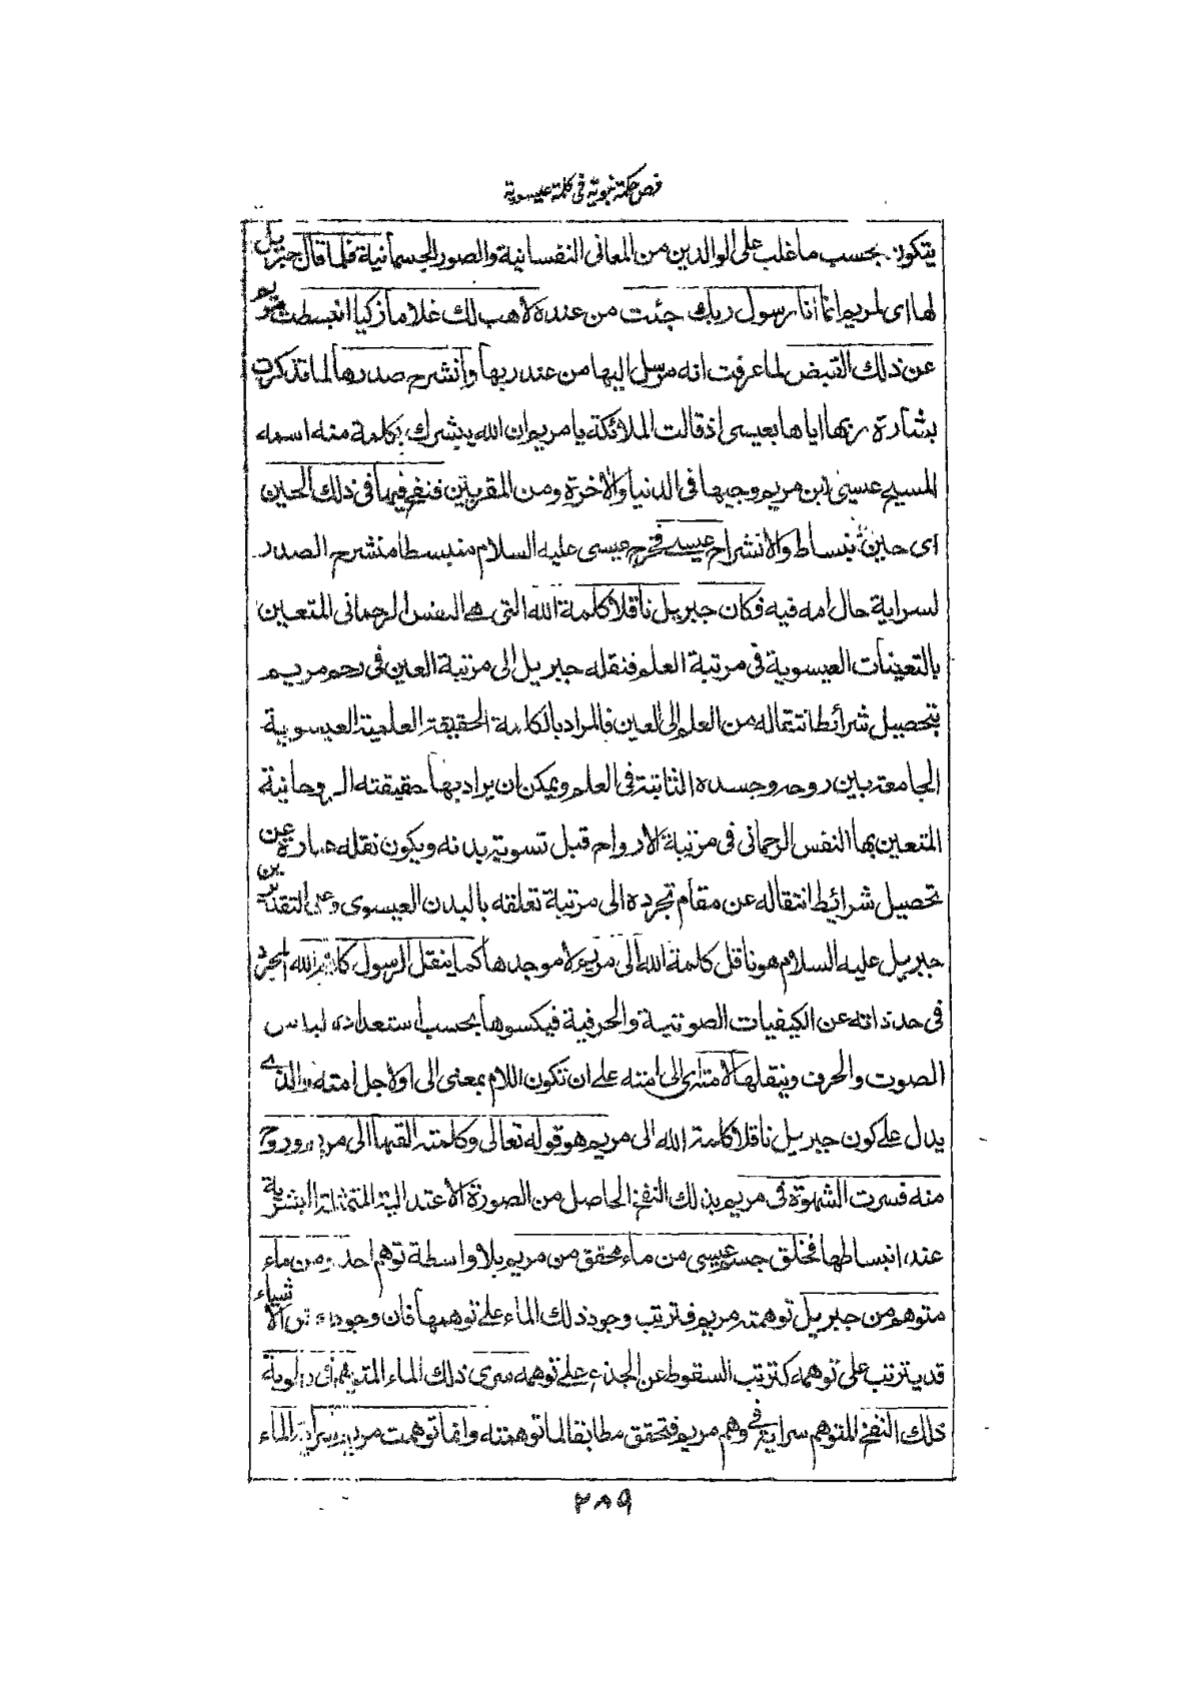 فص حكمة نبوية فى كلمة عيسوية
يتكون بحسب ما غلب على الوالدين من المعانى النفسانية والصور الجسمانية فلما قال جبريل
لها اى لمريم انما انا رسول ربك جئت من عنده لاهب لك غلاما زكيا انبسطت مريم
عن ذلك القبض لما عرفت انه مرسل اليها من عند ربها وانشرح صدرها لما تذكرت
بشارة ربها اياها بعيسى اذ قالت الملائكة يا مريم ان الله يبشرك بكلمة منه اسمه
المسيح عيسى ابن مريم وجيها فى الدنيا والاخرة ومن المقربين فنفخ فيها فى ذلك الحين
اى حين الانبساط والانشراح عيسى فخرج عيسى عليه السلام منبسطا منشرح الصدر
لسراية حال امه فيه فكان جبريل ناقلا كلمة الله التى هى النفس الرحمانى المتعين
بالتعينات العيسوية فى مرتبة العلم فنقله جبريل الى مرتبة العين فى رحم مريم
بتحصيل شرائط انتقاله من العلم الى العين فالمراد بالكلمة الحقيقة العلمية العيسوية
الجامعة بين روحه وجسده الثابتة فى العلم ويمكن ان يراد بها حقيقته الروحانية
المتعين بها النفس الرحمانى فى مرتبة الارواح قبل تسوية بدنه ويكون نقله عبارة عن
تحصيل شرائط انتقاله عن مقام تجرده الى مرتبة تعلقه بالبدن العيسوى وعلى التقديرين
جبريل عليه السلام هو ناقل كلمة الله الى مريم لا موجدها كما ينقل الرسول كلام الله المجرد
فى حد ذاته عن الكيفيات الصوتية والحرفية فيكسوها بحسب استعداده لباس
الصوت والحرف وينقلها لامته اى الى امته على ان تكون اللام بمعنى الى او لاجل امته والذى
يدل على كون جبريل ناقلا كلمة الله الى مريم هو قوله تعالى وكلمته القيها الى مريم وروح
منه فسرت الشهوة فى مريم بذلك النفخ الحاصل من الصورة الاعتدالية المتمثلة البشرية
عند انبساطها فخلق جسم عيسى من ماء محقق من مريم بلا واسطة توهم احد ومن ماء
متوهم من جبريل توهمته مريم فترتب وجود ذلك الماء على توهمها فان وجود بعض الاشياء
قد يترتب على توهمه كترتب السقوط عن الجذع على توهمه سرى ذلك الماء المتوهم فى رطوبة
ذلك النفخ المتوهم سرايته فى وهم مريم فتحقق مطابقا لما توهمته وانما توهمت مريم سراية الماء
٢٨٩